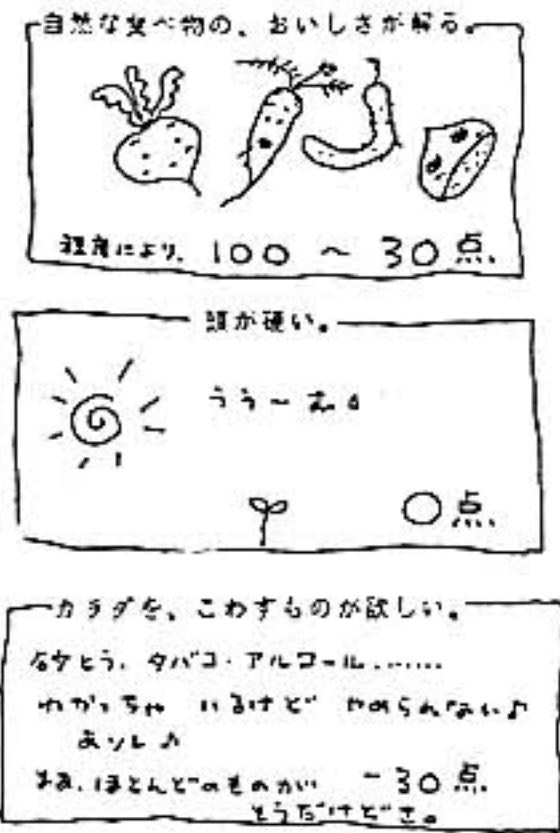 自然な食べ物の、おいしさが解る。
程度により、100 〜 30点
頭が硬い。
うう〜む。
0点
カラダを、こわすものが欲しい。
砂とう、タバコ・アルコール、……
わかっちゃ いるけど やめられない♪
まあ、ほとんどのものが −30点
そうだけどさ。